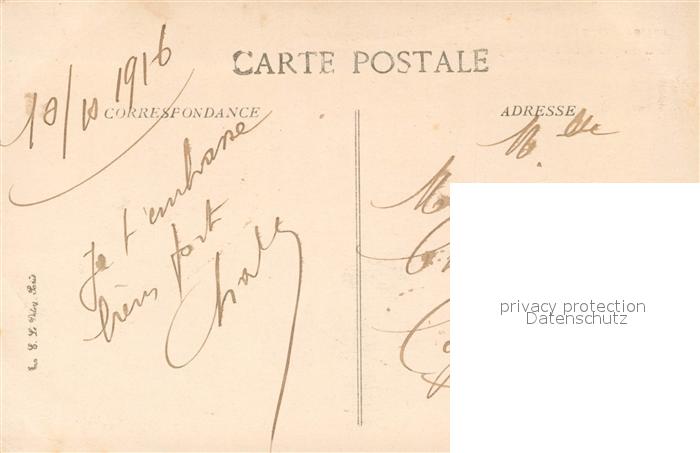 CARTE POSTALE
10/10 1916
CORRESPONDANCE
ADRESSE
Je t'embrasse
bien fort
Charles
Melle
privacy protection
Datenschutz